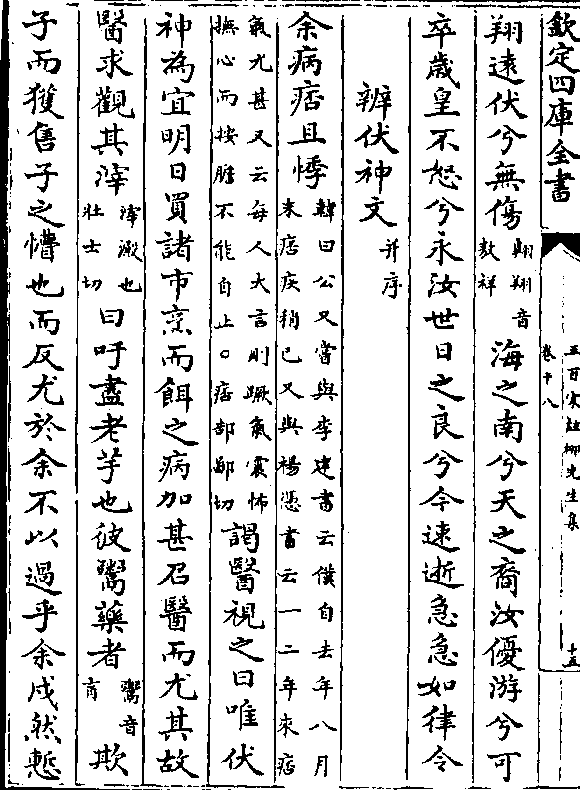 欽定四庫全書
五百家註柳先生集
卷十八
十五
翔遠伏兮無傷翺翔音敖祥海之南兮天之裔汝優游兮可
卒歲皇不怒兮永汝世日之良兮今速逝急急如律令
辨伏神文并序
余病痞且悸韓曰公又嘗與李建書云僕自去年八月
來痞疾稍已又與楊憑書云一二年來痞
氣尤甚又云每人大言則蹶氣震怖
撫心而按膽不能自止○痞部鄙切謁醫視之曰唯伏
神為宜明日買諸市烹而餌之病加甚召醫而尤其故
醫求觀其滓滓澱也壯士切曰吁盡老芋也彼鬻藥者鬻音育欺
子而獲售子之懵也而反尤於余不以過乎余戍然慙